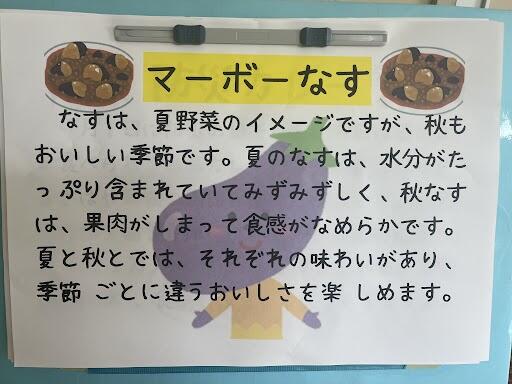 マーボーなす
なすは、夏野菜のイメージですが、秋も
おいしい季節です。夏のなすは、水分がた
っぷり含まれていてみずみずしく、秋なす
は、果肉がしまって食感がなめらかです。
夏と秋とでは、それぞれの味わいがあり、
季節 ごとに違うおいしさを楽 しめます。